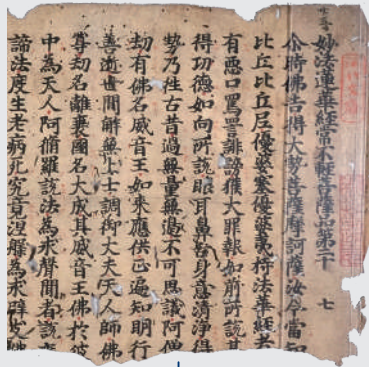 妙法蓮華經常不輕菩薩品第二十 七
尒時佛告得大勢菩薩摩訶薩汝今當知
比丘比丘尼優婆塞優婆夷持法華經者
有惡口罵詈誹謗獲大罪報如前所說其
得功德如向所說眼耳鼻舌身意清淨得
勢乃往古昔過無量無邊不可思議阿僧
劫有佛名威音王如來應供正遍知明行
善逝世間解無上士調御丈夫天人師佛
尊劫名離衰國名大成其威音王佛於彼
中為天人阿脩羅說法為求聲聞者說
諦法度生老病死究竟涅槃為求辟支佛